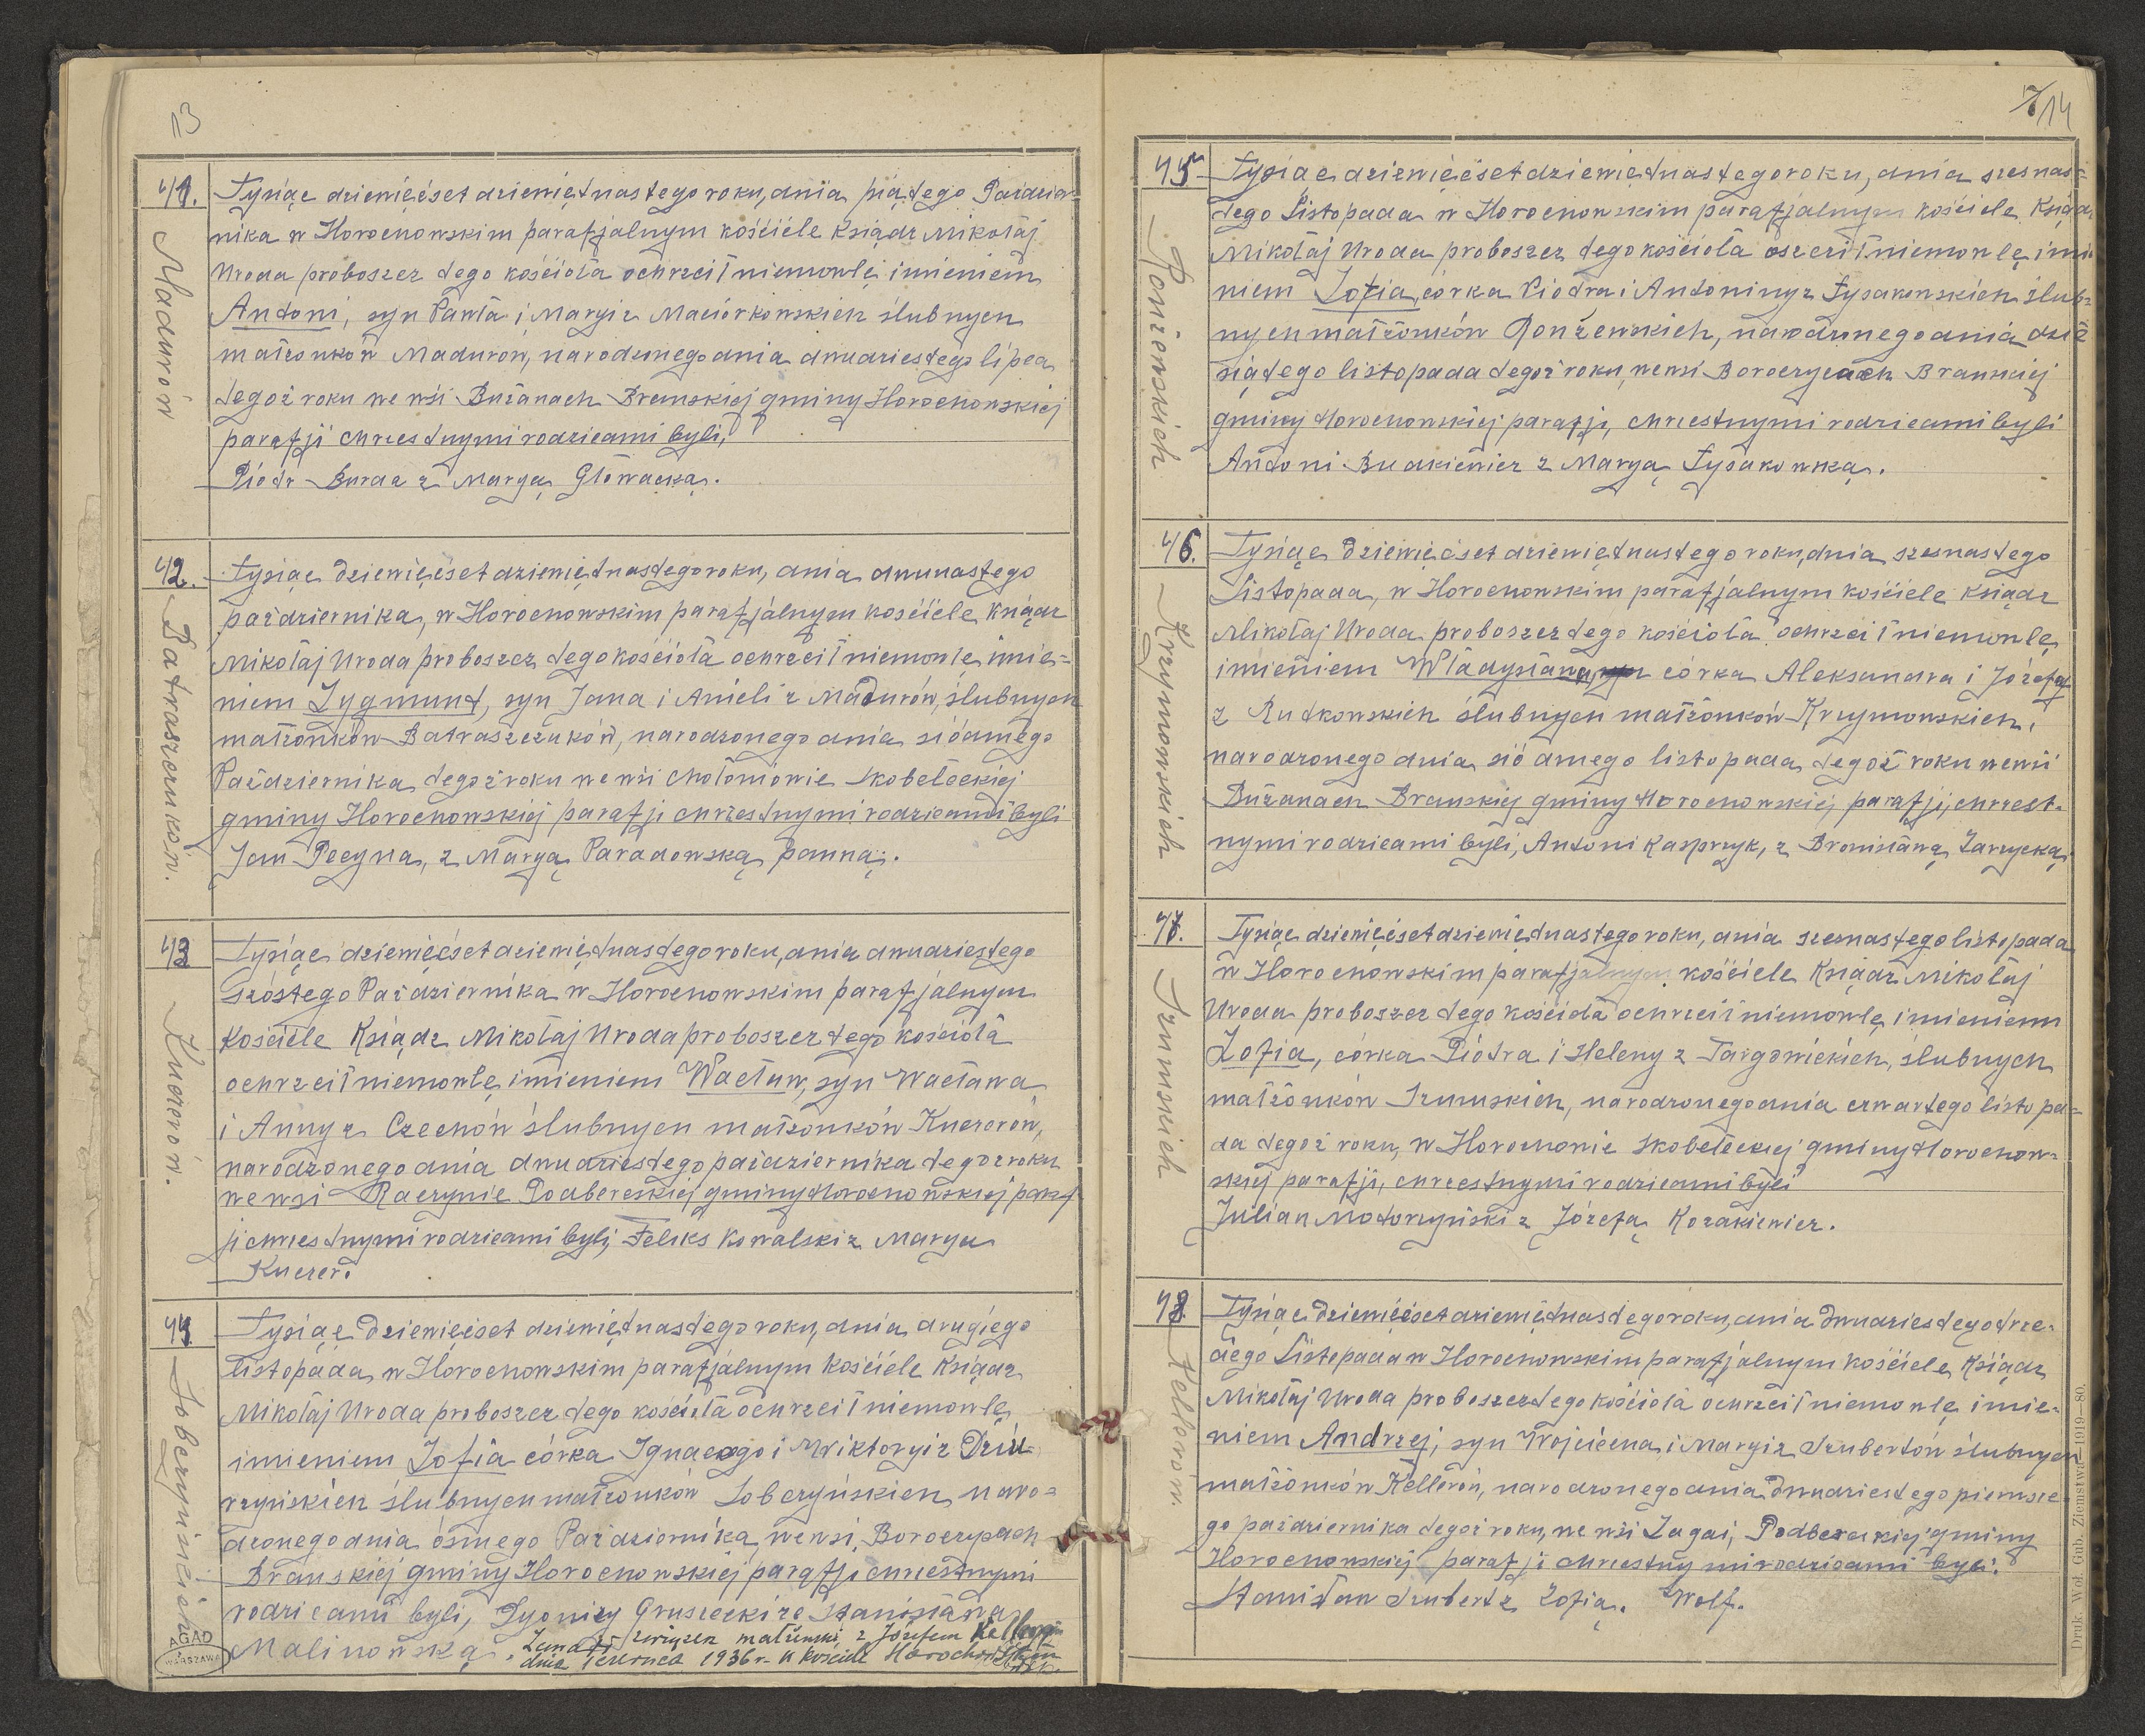 13
41.
Madurów
Tysiąc dziewięćset dziewiętnastego roku, dnia piątego Paździer=
nika w Horochowskim parafjalnym kościele Ksiądz Mikołaj
Uroda proboszcz tego kościoła ochrzcił niemowlę imieniem
Antoni, syn Pawła i Maryi z Maciórkowskich ślubnych
małżonków Madurów, narodzonego dnia dwudziestego lipca
tegoż roku we wsi Bużanach Brańskiej gminy Horochowskiej
parafji chrzestnymi rodzicami byli,
Piotr Burda z Maryą Głowacką.
42.
Batraszczuków.
Tysiąc dziewięćset dziewiętnastego roku, dnia dwunastego
października, w Horochowskim parafjalnym kościele Ksiądz
Mikołaj Uroda proboszcz tego kościoła ochrzcił niemowle imie=
niem Zygmunt, syn Jana i Anieli z Madurów, ślubnych
małżonków Batraszczuków, narodzonego dnia siódmego
Października tegoż roku we wsi Chołoniowie Skobełeckiej
gminy Horochowskiej parafji chrzestnymi rodzicami byli
Jan Pecyna, z Maryą Paradowską panną.
43
Kuczerów.
Tysiąc dziewięćset dziewiętnastego roku, dnia dwudziestego
szóstego Października w Horochowskim parafjalnym
Kościele Ksiądz Mikołaj Uroda proboszcz tego kościoła
ochrzcił niemowlę imieniem Wacław, syn Wacława
i Anny z Czechów ślubnych małżonków Kuczerów,
narodzonego dnia dwudziestego października tegoż roku
we wsi Raczynie Podbereskiej gminy Horochowskiej paraf
ji chrzestnymi rodzicami byli, Feliks Kowalski z Marya
Kuczer.
44
Sobczyńskich
Tysiąc dziewięćset dziewiętnastego roku, dnia drugiego
listopada w Horochowskim parafjalnym Kościele Ksiądz
Mikołaj Uroda proboszcz tego kościoła ochrzcił niemowlę
imieniem Zofia córka Ignacego i Wiktoryi z Dziu=
rzyńskich ślubnych małżonków Sobczyńskich, naro=
dzonego dnia ósmego Października we wsi, Boroczycach
Brańskiej gminy Horochowskiej parafji chrzestnymi
rodzicami byli, Dyonizy Gruszecki ze Stanisławą
Malinowską.
Zawarła związek małżeński z Józefem Kellerem
dnia czerwca 1936 r. w kościele Horochowskim
AGAD
WARSZAWA
7/14
45
Ronżewskich
Tysiąc dziewięćset dziewiętnastego roku, dnia szesnas=
tego Listopada w Horochowskim parafjalnym kościele Ksiądz
Mikołaj Uroda proboszcz tego kościoła oszcził niemowlę imie
niem Zofia, córka Piotra i Antoniny z Tysakowskich ślub=
nych małżonków Ronżewskich, narodzonego dnia dzie
siątego listopada tegoż roku, we wsi Boroczycach Brańskiej
gminy Horochowskiej parafji, chrzestnymi rodzicami byli
Antoni Budkiewicz z Maryą Tysakowską.
46.
Krzymowskich
Tysiąc dziewięćset dziewiętnastego roku, dnia szesnastego
Listopada, w Horochowskim parafjalnym kościele Ksiądz
Mikołaj Uroda proboszcz tego kościoła ochrzcił niemowlę
imieniem Władysława, córka Aleksandra i Józefy
z Rutkowskich ślubnych małżonków Krzymowskich,
narodzonego dnia siódmego listopada tegoż roku we wsi
Bużanach Brańskiej gminy Horochowskiej parafji, chrzest=
nymi rodzicami byli, Antoni Kasprzyk, z Bronisławą Zarzycką.
47.
Szumskich
Tysiąc dziewięćset dziewiętnastego roku, dnia szesnastego listopada
w Horochowskim parafjalnym kościele Ksiądz Mikołaj
Uroda proboszcz tego kościoła ochrzcił niemowlę imieniem
Zofia, córka Piotra i Heleny z Targowickich, ślubnych
małżonków Szumskich, narodzonego dnia czwartego listopa=
da tegoż roku, w Horochowie Skobełeckiej gminy Horochow=
skiej parafji, chrzestnymi rodzicami byli
Julian Motorzyński z Józefą Kozakiewicz.
48.
Kellerów.
Tysiąc dziewięćset dziewiętnastego roku, dnia dwudziestego trze=
ciego Listopada w Horochowskim parafjalnym kościele Ksiądz
Mikołaj Uroda proboszcz tego kościoła ochrzcił niemowlę imie=
niem Andrzej, syn Wojciecha i Maryi z Szubertów ślubnych
małżonków Kellerów, narodzonego dnia dwudziestego pierwsze=
go października tegoż roku, we wsi Zagai, Podbereskiej gminy
Horochowskiej parafji chrzestnymi rodzicami byli.
Stanisław Szubert z Zofią. Wolf.
Druk. Woł. Gub. Ziemstwa—1919—80.